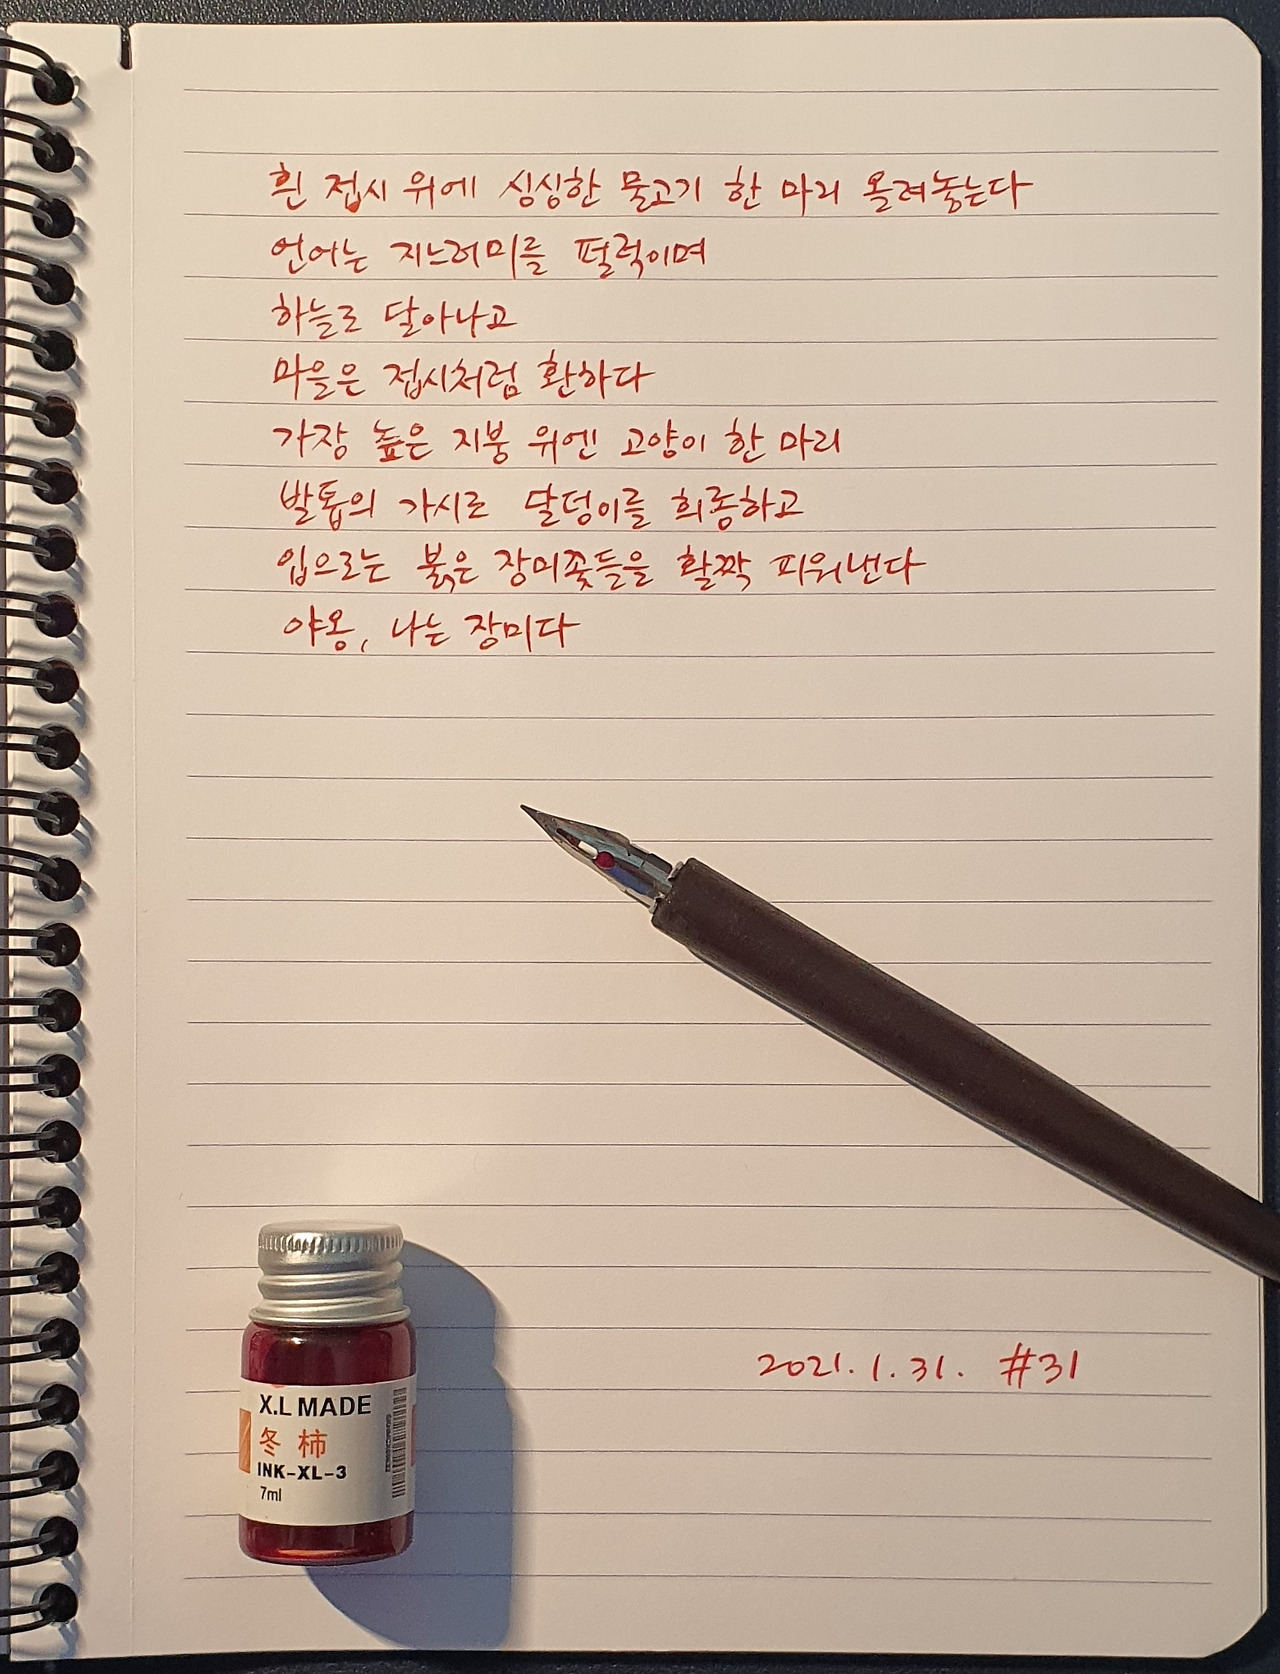 흰 접시 위에 싱싱한 물고기 한 마리 올려놓는다
언어는 지느러미를 펄럭이며
하늘로 달아나고
마을은 접시처럼 환하다
가장 높은 지붕 위엔 고양이 한 마리
발톱의 가시로 달덩이를 희롱하고
입으로는 붉은 장미꽃들을 활짝 피워낸다
야옹, 나는 장미다
2021. 1. 31. #31
X.L MADE
冬 柿
INK-XL-3
7ml